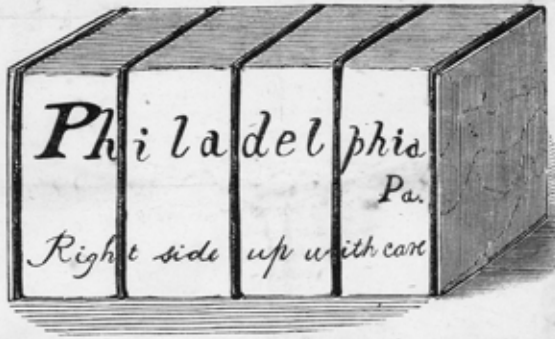 Philadelphia
Pa.
Right side up with care